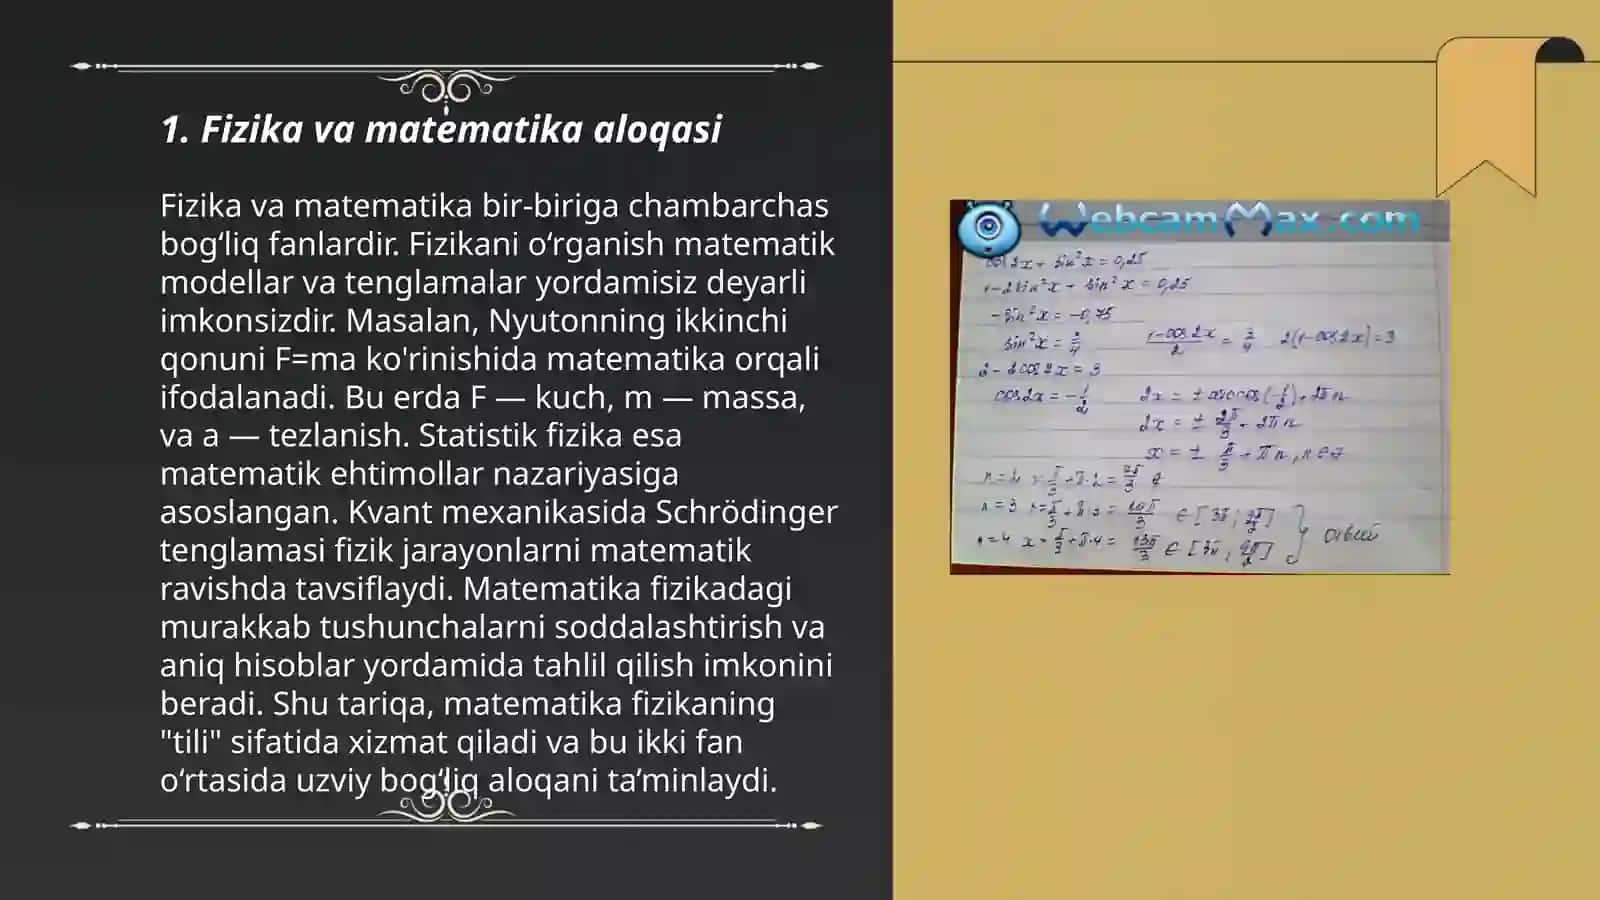 1. Fizika va matematika aloqasi
Fizika va matematika bir-biriga chambarchas
bog‘liq fanlardir. Fizikani o‘rganish matematik
modellar va tenglamalar yordamisiz deyarli
imkonsizdir. Masalan, Nyutonning ikkinchi
qonuni F=ma ko'rinishida matematika orqali
ifodalanadi. Bu erda F — kuch, m — massa,
va a — tezlanish. Statistik fizika esa
matematik ehtimollar nazariyasiga
asoslangan. Kvant mexanikasida Schrödinger
tenglamasi fizik jarayonlarni matematik
ravishda tavsiflaydi. Matematika fizikadagi
murakkab tushunchalarni soddalashtirish va
aniq hisoblar yordamida tahlil qilish imkonini
beradi. Shu tariqa, matematika fizikaning
"tili" sifatida xizmat qiladi va bu ikki fan
o‘rtasida uzviy bog‘liq aloqani ta’minlaydi.
WebcamMax.com
cos2x + sin²x = 0,25
1-2sin²x + sin²x = 0,25
-sin²x = -0,75
sin²x = 3/4 (1-cos2x)/2 = 3/4 2(1-cos2x)=3
2-2cos2x = 3
cos2x = -1/2 2x = ± arccos(-1/2)+2πn
2x = ± 2π/3 + 2πn
x = ± π/3 + πn, n∈Z
n=2 x = π/3 + π·2 = 7π/3
n=3 x = π/3 + π·3 = 10π/3 ∈ [3π; 9π/2]
n=4 x = π/3 + π·4 = 13π/3 ∈ [3π; 9π/2] } ответ